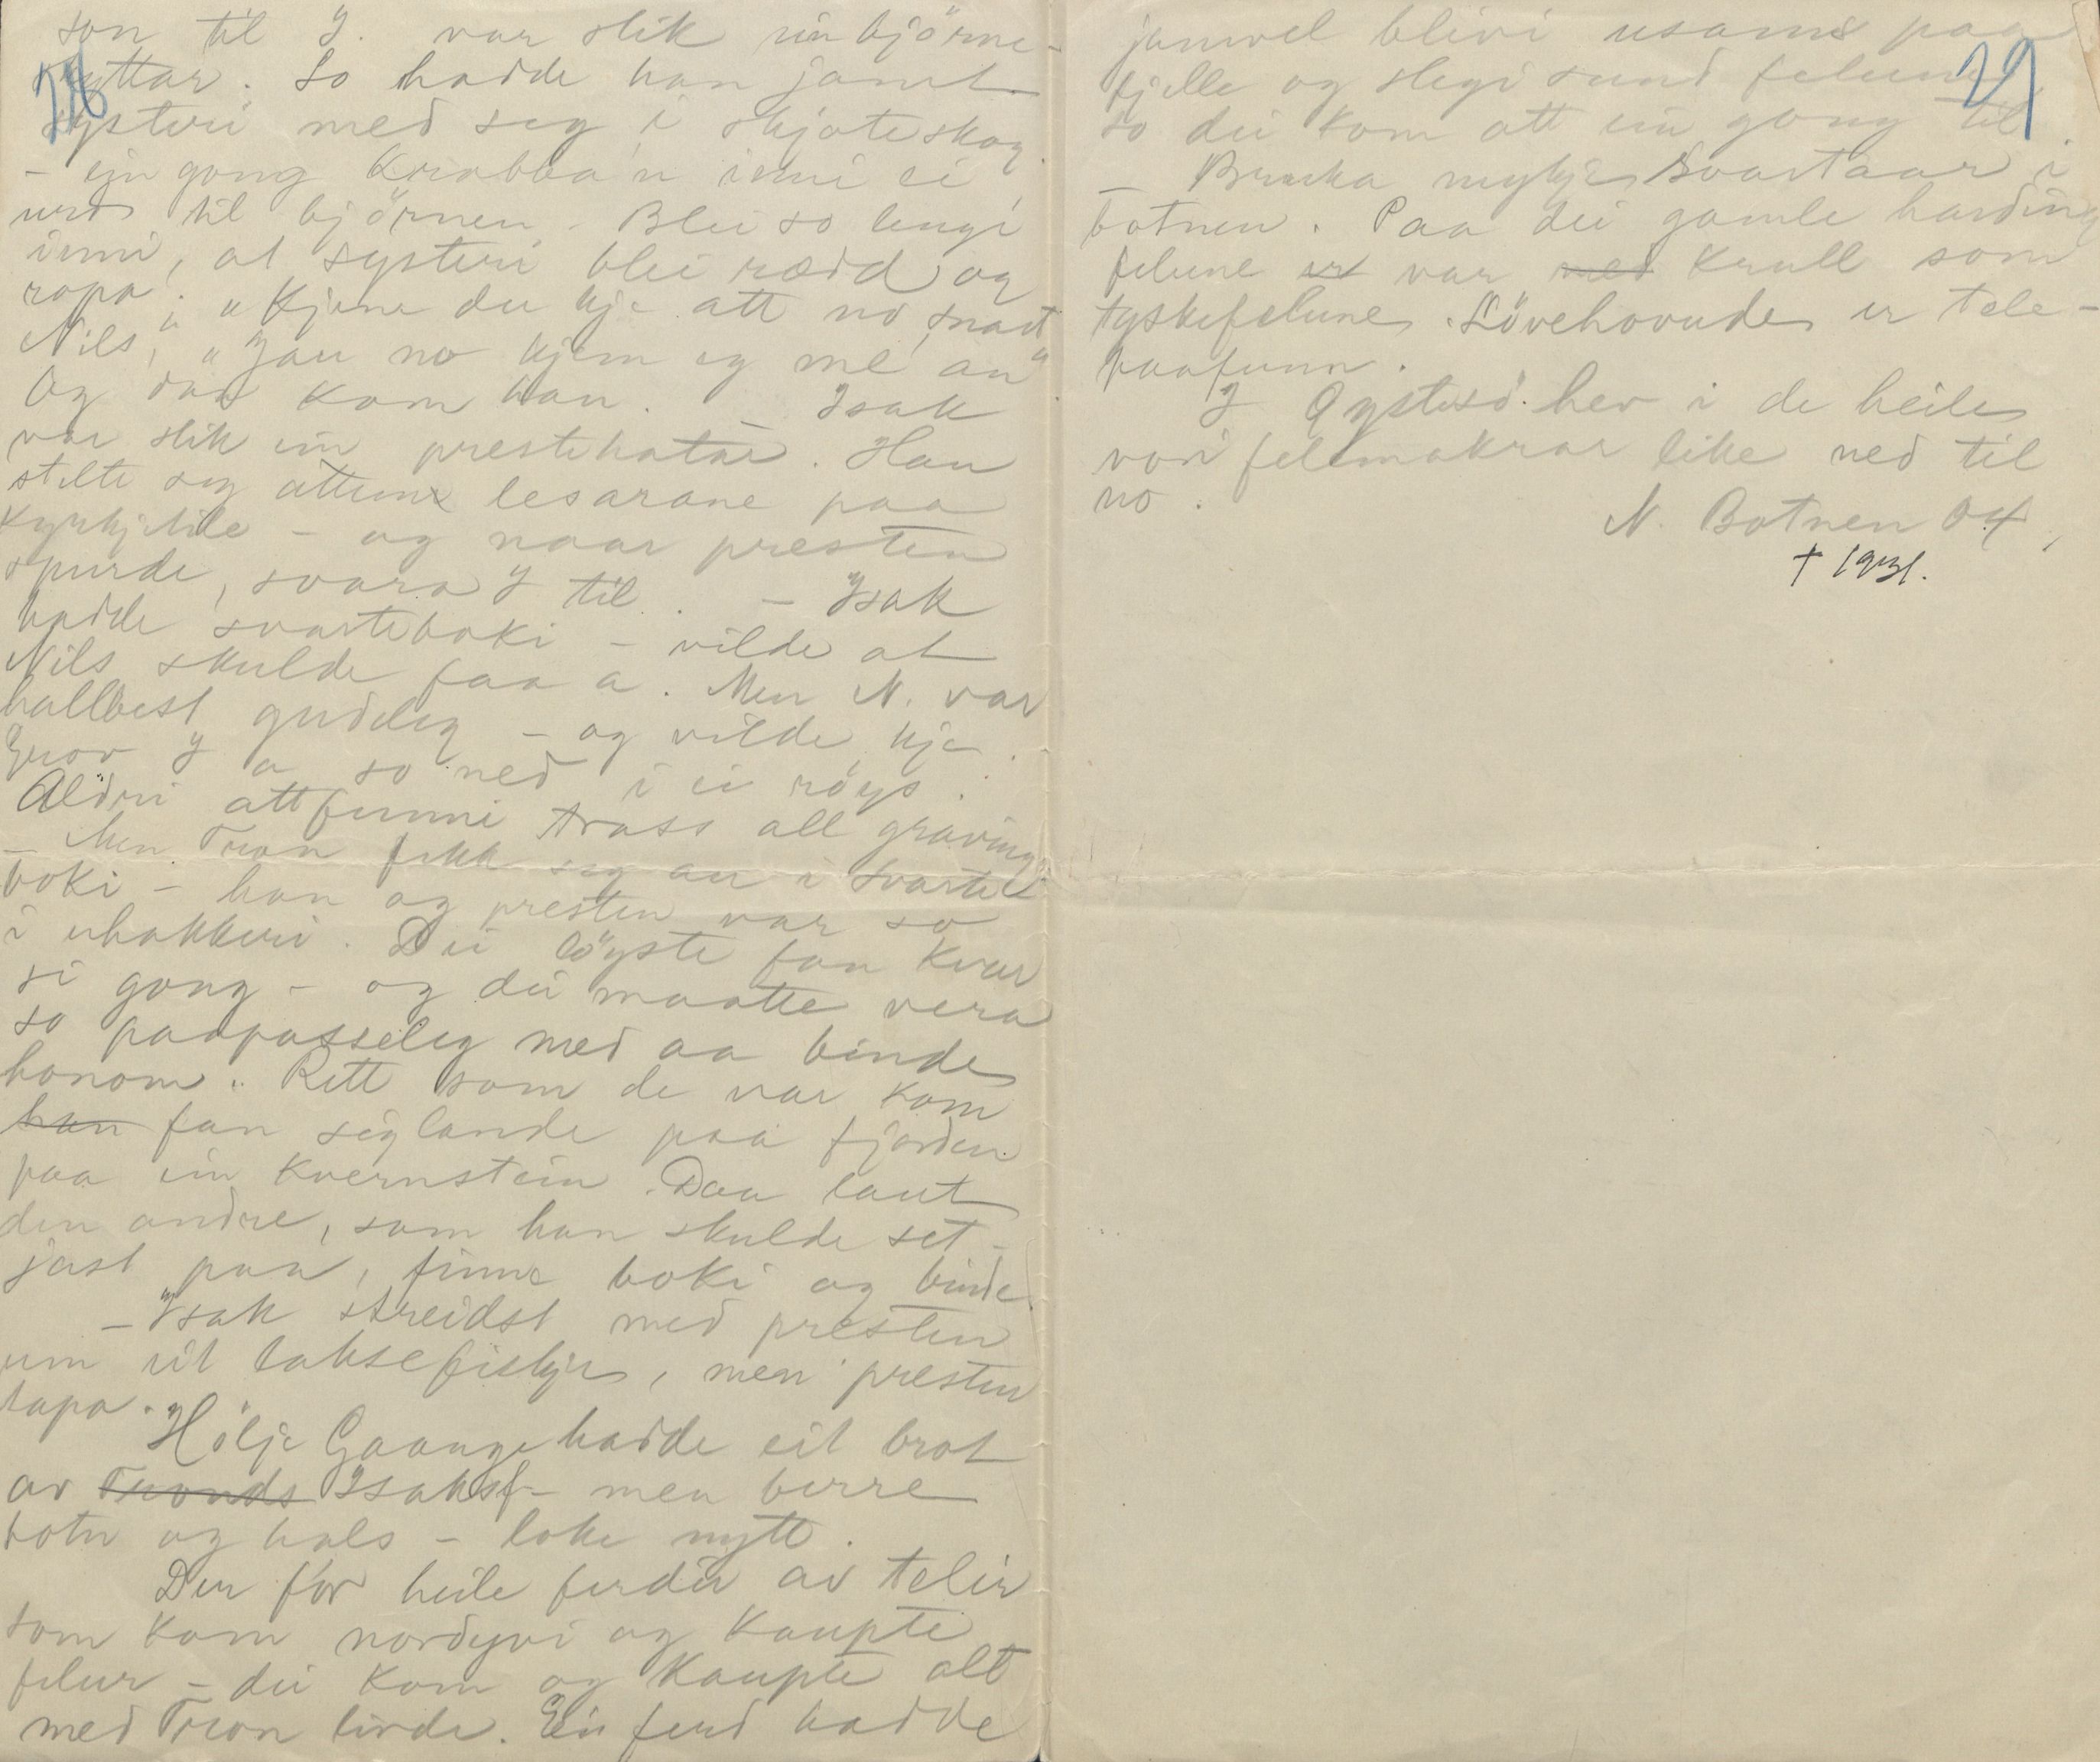 28
son til J. var slik ein björne-
skyttar. So hadde han jamt
systeri med seg i skjoteskog.
- ein gong krabba'n inni ei
urd til björnen. - Blei so lengi
inni, at systeri blei rædd og
ropa: "Kjeme du kje att no snart
Nils," "Jau no kjem eg me an"
Og daa kom han. - Isak
var slik ein prestehatar. Han
stelte seg attum lesarane paa
kyrkjetile - og naar presten
spurde, svara J til. - Isak
hadde svarteboki - vilde at
Nils skulde faa a. Men N. var
hallvest gudeleg - og vilde kje.
Grov J a so ned i ei röys.
Aldri attfunni trass all graving.
- Men Tron fekk seg au i svarte-
boki - han og presten var so
i uhakkeri. Dei löyste fan kvar
si gong - og dei maatte vera
so paapasseleg med aa binde
honom. Rett som de var kom
han fan siglande paa fjorden
paa ein kvernstein. Daa laut
den andre, som han skulde set-
jast paa, finne boki og binde.
- Isak streidst med presten
um eit laksefiskje, men presten
tapa.
Hölje Gaange hadde eit brot
av Tronds Isaksf - men berre
botn og hals - loke nytt.
Der fór heile ferder av teler
som kom nordyvi og kaupte
felur - dei kom og kaupte alt
med Tron livde. Ein ferd hadde
29
jamvel blivi usams paa
fjelle og slegi sund felune
so dei kom att ein gong til.
- Bruka mykje svartaar i
botnen. Paa dei gamle harding
felune er var med krull som
tyskefelune. Lövehovude er tele-
paafunn.
I Öystesö. hev i de heile
vori felemakrar like ned til
no.
N. Botnen 04,
† 1931.